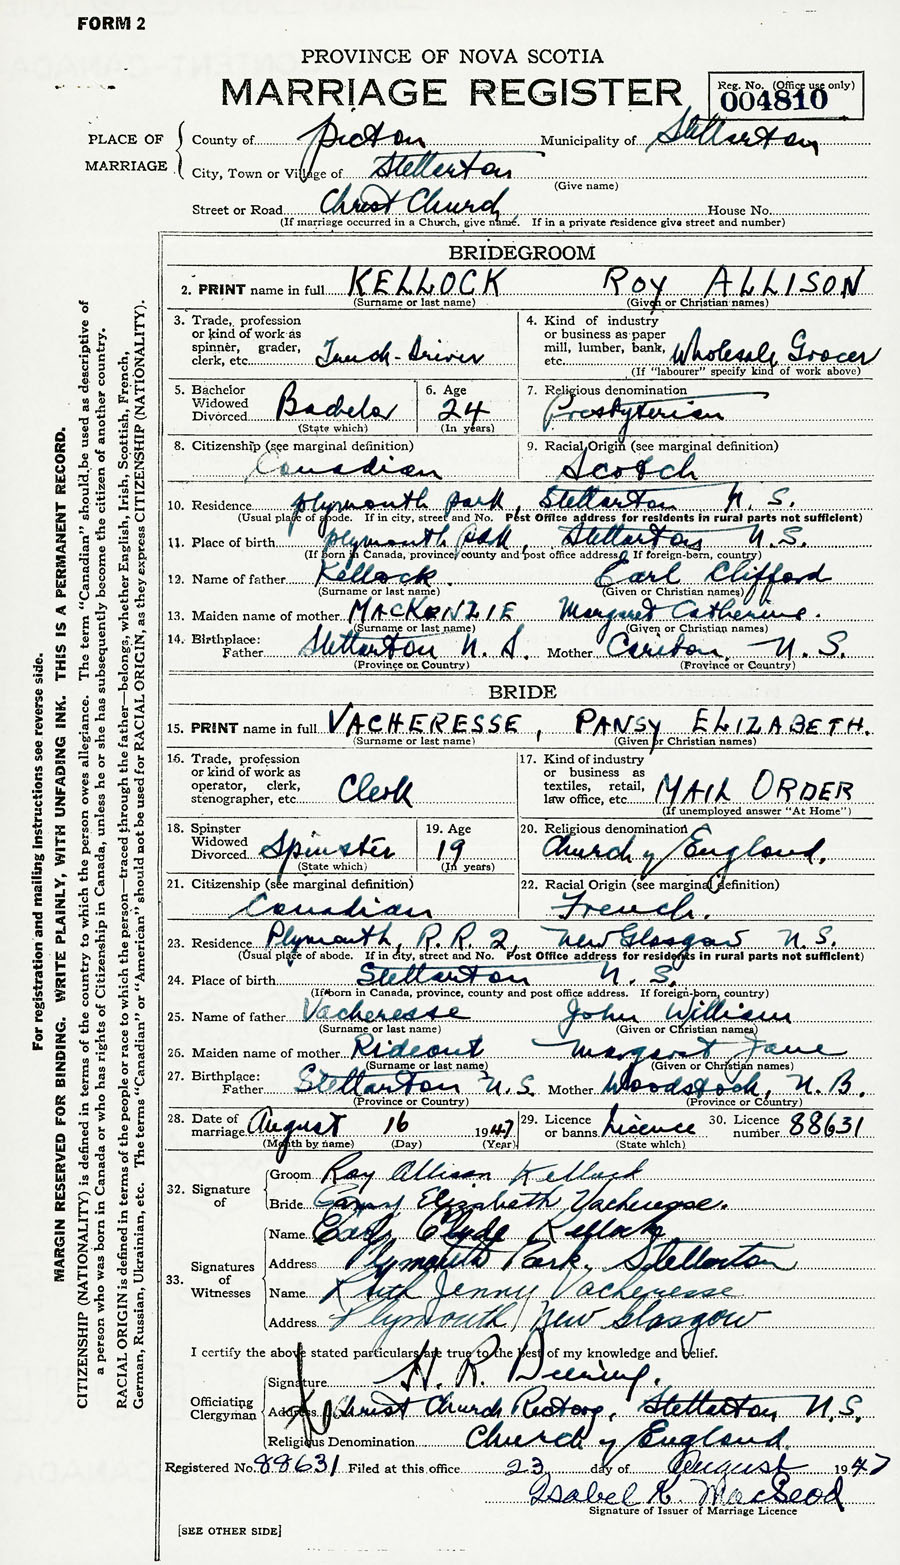 FORM 2
PROVINCE OF NOVA SCOTIA
MARRIAGE REGISTER
Reg. No. (Office use only)
004810
PLACE OF MARRIAGE
County of Pictou Municipality of Stellarton
City, Town or Village of Stellarton
(Give name)
Street or Road Christ Church House No.
(If marriage occurred in a Church, give name. If in a private residence give street and number)
BRIDEGROOM
2. PRINT name in full KELLOCK ROY ALLISON
(Surname or last name) (Given or Christian names)
3. Trade, profession or kind of work as spinner, grader, clerk, etc. Truck-Driver
4. Kind of industry or business as paper mill, lumber, bank, etc. Wholesale Grocer
(If "labourer" specify kind of work above)
5. Bachelor Widowed Divorced Bachelor (State which)
6. Age 24 (In years)
7. Religious denomination Presbyterian
8. Citizenship (see marginal definition) Canadian
9. Racial Origin (see marginal definition) Scotch
10. Residence Plymouth Park, Stellarton N. S.
(Usual place of abode. If in city, street and No. Post Office address for residents in rural parts not sufficient)
11. Place of birth Plymouth Park, Stellarton N.S.
(If born in Canada, province, county and post office address. If foreign-born, country)
12. Name of father Kellock. Earl Clifford
(Surname or last name) (Given or Christian names)
13. Maiden name of mother MACKENZIE Margaret Catherine.
(Surname or last name) (Given or Christian names)
14. Birthplace: Father Stellarton N. S. Mother N. S.
(Province or Country) (Province or Country)
BRIDE
15. PRINT name in full VACHERESSE, PANSY ELIZABETH.
(Surname or last name) (Given or Christian names)
16. Trade, profession or kind of work as operator, clerk, stenographer, etc. Clerk
17. Kind of industry or business as textiles, retail, law office, etc. MAIL ORDER
(If unemployed answer "At Home")
18. Spinster Widowed Divorced Spinster (State which)
19. Age 19 (In years)
20. Religious denomination Church of England.
21. Citizenship (see marginal definition) Canadian
22. Racial Origin (see marginal definition) French.
23. Residence Plymouth, R.R.2, New Glasgow N.S.
(Usual place of abode. If in city, street and No. Post Office address for residents in rural parts not sufficient)
24. Place of birth Stellarton N. S.
(If born in Canada, province, county and post office address. If foreign-born, country)
25. Name of father Vacheresse John William
(Surname or last name) (Given or Christian names)
26. Maiden name of mother Rideout Margaret Jane
(Surname or last name) (Given or Christian names)
27. Birthplace: Father Stellarton N.S. Mother Woodstock, N.B.
(Province or Country) (Province or Country)
28. Date of marriage August 16 1947
(Month by name) (Day) (Year)
29. Licence or banns Licence (State which)
30. Licence number 88631
32. Signature of
Groom Roy Allison Kellock
Bride Pansy Elizabeth Vacheresse.
33. Signatures of Witnesses
Name Earl Clyde Kellock
Address Plymouth Park, Stellarton
Name Ruth Jenny Vacheresse
Address Plymouth, New Glasgow
I certify the above stated particulars are true to the best of my knowledge and belief.
Officiating Clergyman
Signature H. R. Deering.
Address Christ Church Rectory, Stellarton N.S.
Religious Denomination Church of England.
Registered No. 88631 Filed at this office 23 day of August 1947
Isabel K. MacLeod
Signature of Issuer of Marriage Licence
[SEE OTHER SIDE]
For registration and mailing instructions see reverse side.
MARGIN RESERVED FOR BINDING. WRITE PLAINLY, WITH UNFADING INK. THIS IS A PERMANENT RECORD.
CITIZENSHIP (NATIONALITY) is defined in terms of the country to which the person owes allegiance. The term "Canadian" should be used as descriptive of
a person who was born in Canada or who has rights of Citizenship in Canada, unless he or she has subsequently become the citizen of another country.
RACIAL ORIGIN is defined in terms of the people or race to which the person—traced through the father—belongs, whether English, Irish, Scottish, French,
German, Russian, Ukrainian, etc. The terms "Canadian" or "American" should not be used for RACIAL ORIGIN, as they express CITIZENSHIP (NATIONALITY).